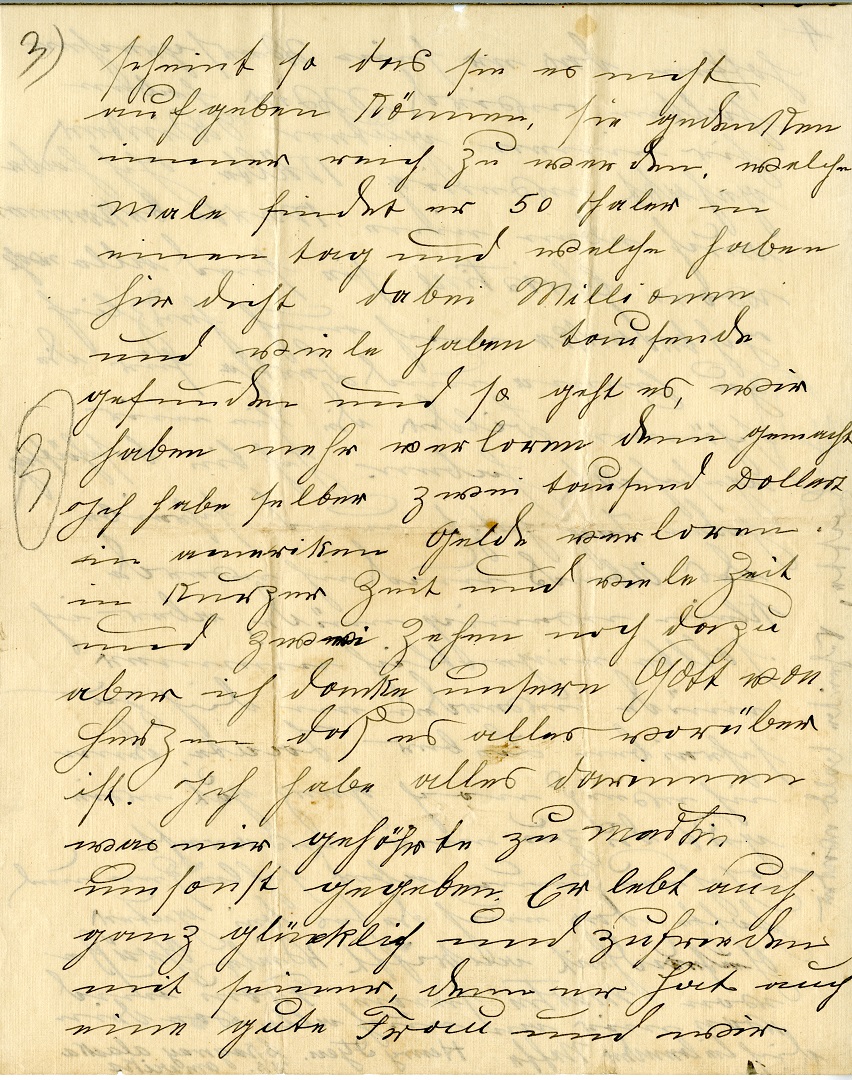 3)
scheint so das sie es nicht
aufgeben können, sie gedenken
immer reich zu werden. welche
male findet er 50 thaler in
einen tag und welche haben
hir dicht dabei Millionen
und viele haben tausende
gefunden und so geht es, wir
3)
haben mehr verloren denn gemacht
Ich habe selber zwei tausend Dollars
in ameriken Gelde verloren.
in kurzer Zeit und viele Zeit
und zwei Zehen noch dazu
aber ich danke unsern Gott von
Herzen daß es alles vorüber
ist. Ich habe alles darinnen
was mir gehöhrte zu Martin
umsonst gegeben. Er lebt auch
ganz glücklich und zufrieden
mit seiner, denn er hat auch
eine gute Frau und wir